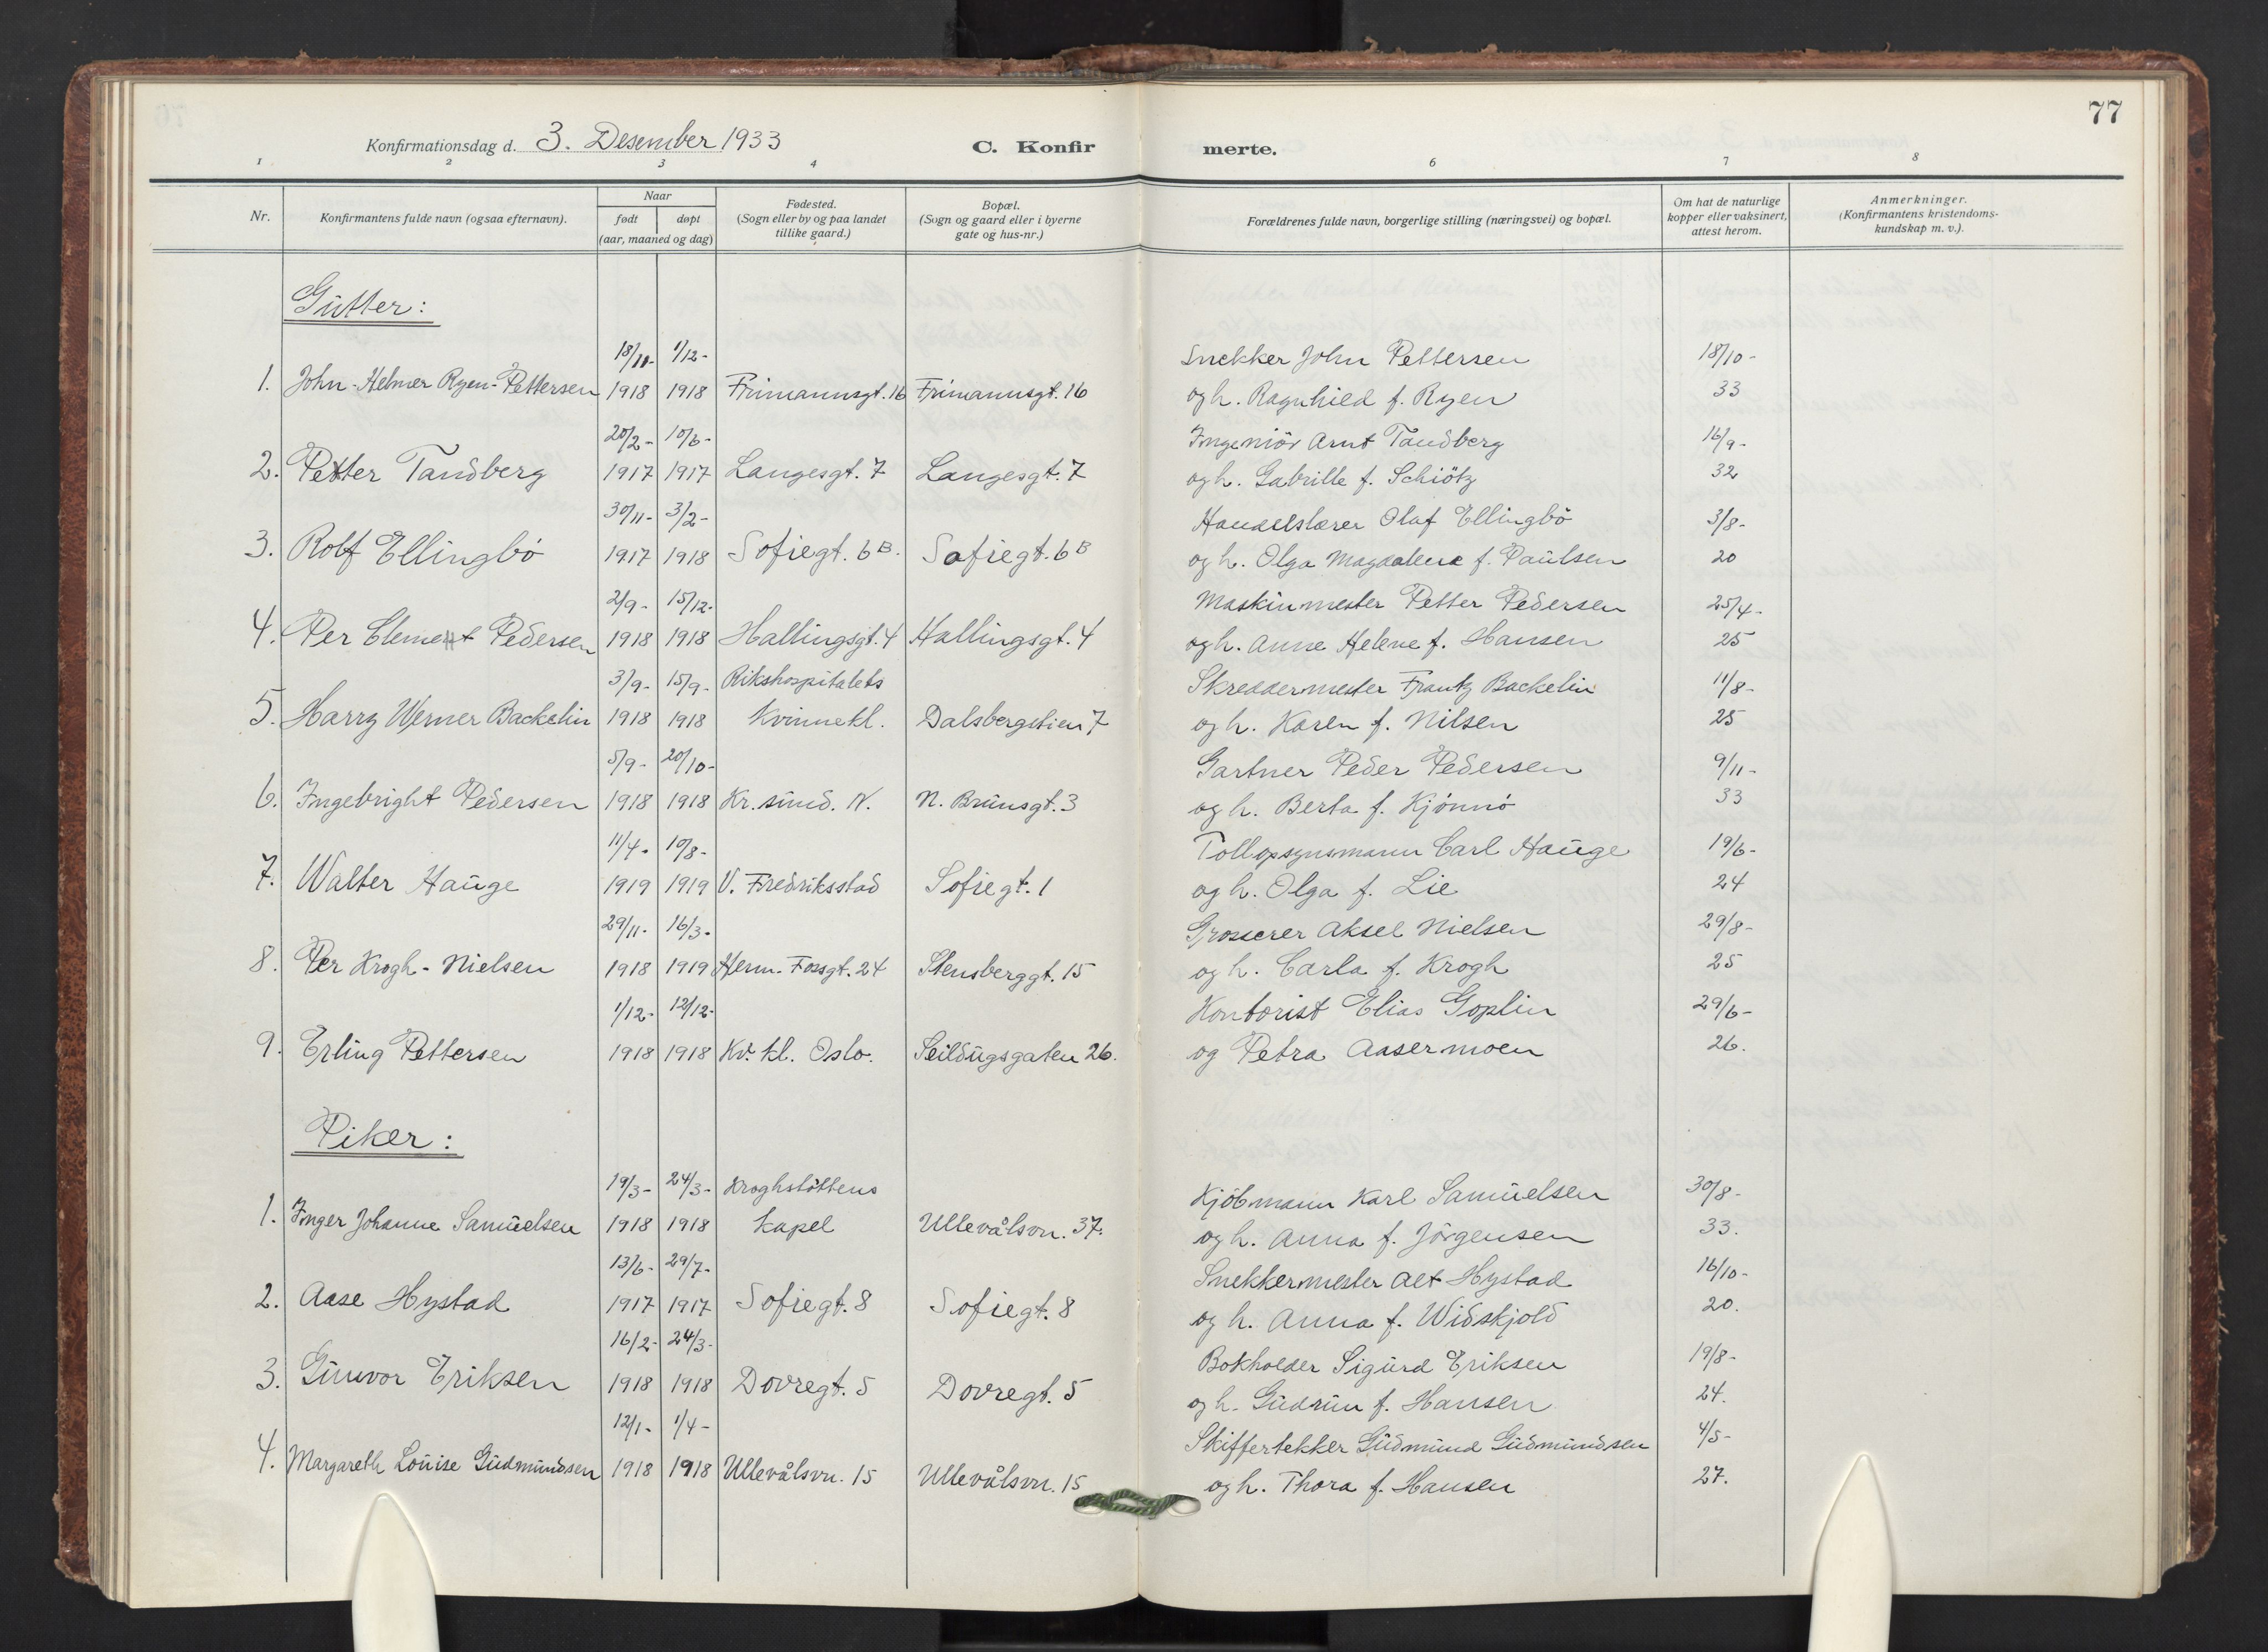 77
Konfirmationsdag d. 3. Desember 1933 C. Konfirmerte.
1 2 3 4 6 7 8
Nr. Konfirmantens fulde navn (ogsaa efternavn). Naar født døpt (aar, maaned og dag) Fødested. (Sogn eller by og paa landet tillike gaard.) Bopæl. (Sogn og gaard eller i byerne gate og hus-nr.) Forældrenes fulde navn, borgerlige stilling (næringsvei) og bopæl. Om hat de naturlige kopper eller vaksinert, attest herom. Anmerkninger. (Konfirmantens kristendoms-kundskap m. v.).
Gutter:
18/11- 1/12- Snekker John Pettersen 18/10-
1. John-Helmer Ryen-Pettersen 1918 1918 Frimannsgt. 16 Frimannsgt. 16 og h. Ragnhild f. Ryen 33
20/2- 10/6- Ingeniör Arnt Tandberg 16/9-
2. Petter Tandberg 1917 1917 Langesgt. 7 Langesgt. 7 og h. Gabrille f. Schiötz 32
30/11- 3/2- Handelslærer Olaf Ellingbö 3/8-
3. Rolf Ellingbö 1917 1918 Sofiegt. 6B. Sofiegt. 6B og h. Olga Magdalene f. Paulsen 20
2/9- 15/12- Maskinmester Petter Pedersen 25/4-
4. Per Clement Pedersen 1918 1918 Hallingsgt. 4 Hallingsgt. 4 og h. Anne Helene f. Hansen 25
3/9- 15/9- Rikshospitalets Skreddermester Frantz Backelin 11/8-
5. Harry Werner Backelin 1918 1918 Kvinnekl. Dalsbergstien 7 og h. Karen f. Nilsen 25
5/9- 20/10- Gartner Peder Pedersen 9/11-
6. Ingebright Pedersen 1918 1918 Kr.sund. N. N. Brunsgt. 3 og h. Berta f. Kjönnö 33
11/4- 10/8- Tollopsynsmann Carl Hauge 19/6-
7. Walter Hauge 1919 1919 V. Fredriksstad Sofiegt. 1 og h. Olga f. Lie 24
29/11- 16/3- Grosserer Aksel Nielsen 29/8-
8. Per Krogh-Nielsen 1918 1919 Herm. Fossgt. 24 Stensberggt. 15 og h. Carla f. Krogh 25
1/12- 12/12- Kontorist Elias Goplin 29/6-
9. Erling Pettersen 1918 1918 Kv. kl. Oslo. Seildugsgaten 26. og Petra Aasermoen 26.
Piker:
19/3- 24/3- Kroghstöttens Kjöbmann Karl Samuelsen 30/8-
1. Inger Johanne Samuelsen 1918 1918 kapel Ullevålsvn. 37. og h. Anna f. Jörgensen 33.
13/6- 29/7- Snekkermester Alt Hystad 16/10-
2. Aase Hystad 1917 1917 Sofiegt. 8 Sofiegt. 8 og h. Anna f. Widskjold 20.
16/2- 24/3- Bokholder Sigurd Eriksen 19/8-
3. Gunvor Eriksen 1918 1918 Dovregt. 5 Dovregt. 5 og h. Gudrun f. Hansen 24.
12/1- 1/4- Skiffertekker Gudmund Gudmundsen 4/5-
4. Margareth Louise Gudmundsen 1918 1918 Ullevålsvn. 15 Ullevålsvn. 15 og h. Thora f. Hansen 27.